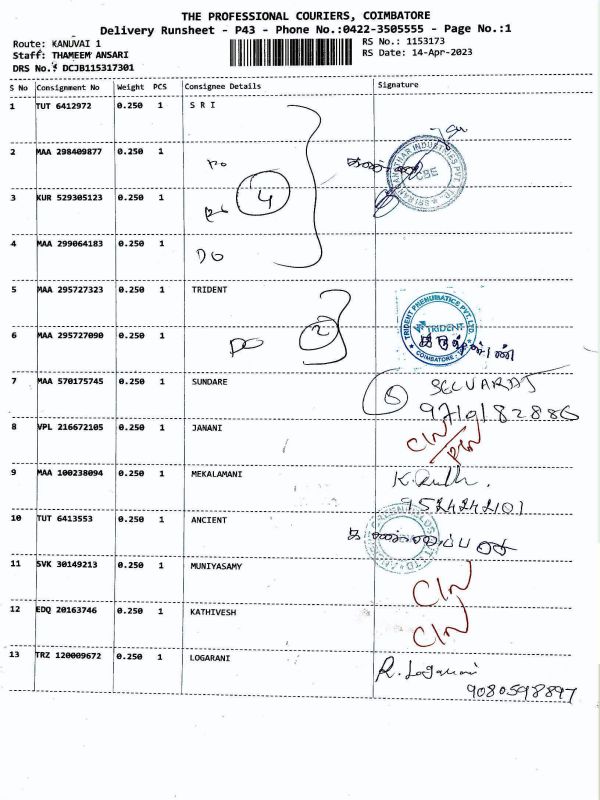 THE PROFESSIONAL COURIERS, COIMBATORE
Delivery Runsheet - P43 - Phone No.:0422-3505555 - Page No.:1
Route: KANUVAI 1
RS No.: 1153173
Staff: THAMEEM ANSARI
RS Date: 14-Apr-2023
DRS No.: DCJB115317301
S No Consignment No Weight PCS Consignee Details Signature
1 TUT 6412972 0.250 1 S R I
2 MAA 298409877 0.250 1
CBE
3 KUR 529305123 0.250 1
4
4 MAA 299064183 0.250 1
DO
5 MAA 295727323 0.250 1 TRIDENT
TRIDENT PNEUMATICS PVT.LTD.
TRIDENT
COIMBATORE
6 MAA 295727090 0.250 1
DO 2
7 MAA 570175745 0.250 1 SUNDARE
5 SELVARAJ
9719182886
8 VPL 216672105 0.250 1 JANANI
C/N
9 MAA 100238094 0.250 1 MEKALAMANI
10 TUT 6413553 0.250 1 ANCIENT
11 SVK 30149213 0.250 1 MUNIYASAMY
C/N
12 EDQ 20163746 0.250 1 KATHIVESH
C/N
13 TRZ 120009672 0.250 1 LOGARANI R. Logarani
9080598897